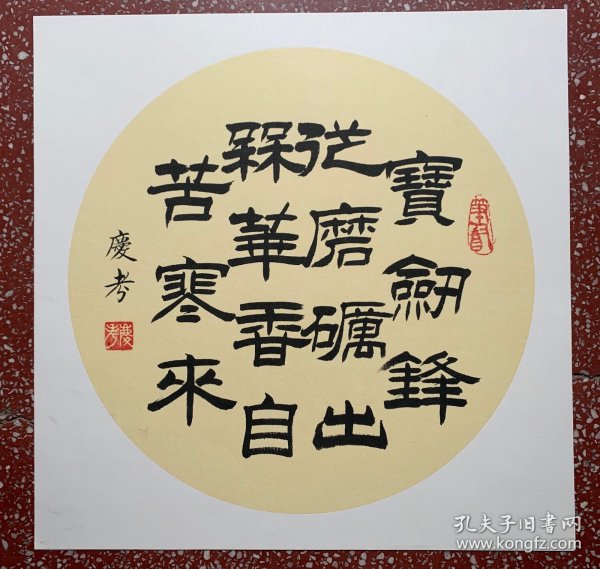 寶劒鋒
從磨礪出
槑華香自
苦寒來
慶考
慶考
孔夫子旧书网
www.kongfz.com